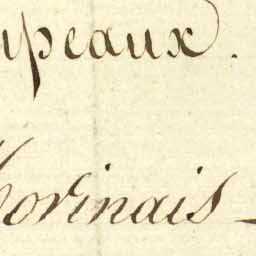 upeaux.
horinais